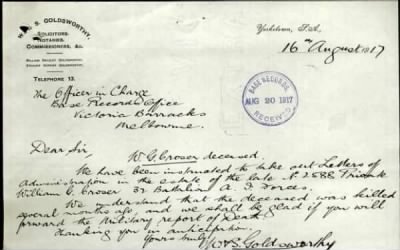 W. & S. GOLDSWORTHY,
SOLICITORS,
NOTARIES,
COMMISSIONERS, &c.
TELEPHONE 13.
Yorketown, S.A.,
16th August 1917
The Officer in Charge
Base Records Office
Victoria Barracks
Melbourne.
BASE RECORDS
AUG 20 1917
RECEIVED
Dear Sir,
W. G. Croser deceased.
We have been instructed to take out Letters of
Administration in the estate of the late No 2588 Private
William G. Croser 32 Battalion A. I. Forces.
We understand that the deceased was killed
several months ago, and we shall be glad if you will
forward the Military report of Death.
Thanking you in anticipation.
Yours truly,
W & S. Goldsworthy